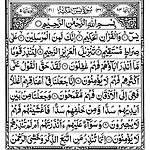 بِسْمِ اللهِ الرَّحْمٰنِ الرَّحِيْمِ
يٰسٓ وَالْقُرْاٰنِ الْحَكِيْمِ اِنَّكَ لَمِنَ الْمُرْسَلِيْنَ عَلٰى
صِرَاطٍ مُّسْتَقِيْمٍ تَنْزِيْلَ الْعَزِيْزِ الرَّحِيْمِ لِتُنْذِرَ قَوْمًا مَّآ
اُنْذِرَ اٰبَآؤُهُمْ فَهُمْ غٰفِلُوْنَ لَقَدْ حَقَّ الْقَوْلُ عَلٰٓى
اَكْثَرِهِمْ فَهُمْ لَا يُؤْمِنُوْنَ اِنَّا جَعَلْنَا فِيْٓ اَعْنَاقِهِمْ
اَغْلٰلًا فَهِيَ اِلَى الْاَذْقَانِ فَهُمْ مُّقْمَحُوْنَ وَجَعَلْنَا مِنْۢ بَيْنِ
اَيْدِيْهِمْ سَدًّا وَّمِنْ خَلْفِهِمْ سَدًّا فَاَغْشَيْنٰهُمْ فَهُمْ
لَا يُبْصِرُوْنَ وَسَوَآءٌ عَلَيْهِمْ ءَاَنْذَرْتَهُمْ اَمْ لَمْ تُنْذِرْهُمْ
لَا يُؤْمِنُوْنَ اِنَّمَا تُنْذِرُ مَنِ اتَّبَعَ الذِّكْرَ وَخَشِيَ الرَّحْمٰنَ